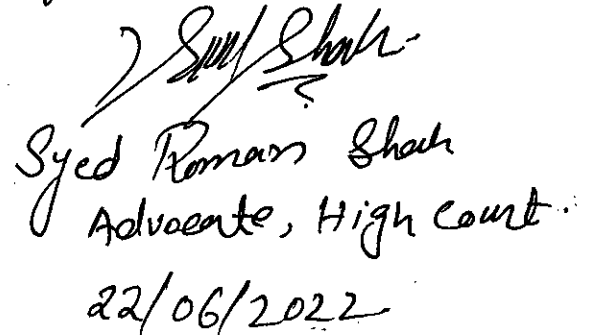 Syed Roman Shah
Advocate, High Court.
22/06/2022